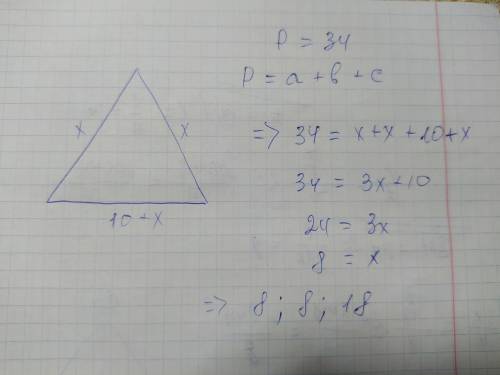 P = 34
P = a + b + c
x
x
10 + x
=> 34 = x + x + 10 + x
34 = 3x + 10
24 = 3x
8 = x
=> 8 ; 8 ; 18